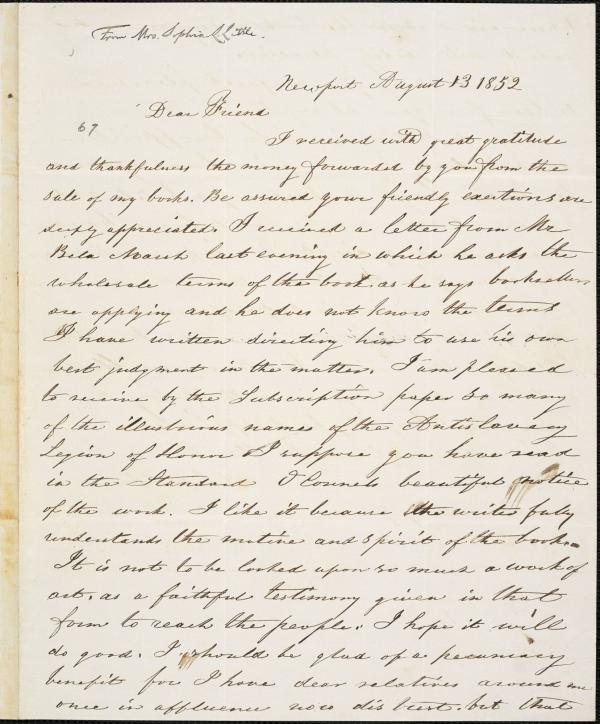 From Mrs. Sophia L. Little.
Newport August 13 1852
Dear Friend
67
I received with great gratitude
and thankfulness the money forwarded by you from the
sale of my books. Be assured your friendly exertions are
deeply appreciated. I received a letter from Mr
Bela Marsh last evening in which he asks the
wholesale terms of the book. as he says booksellers
are applying and he does not know the terms
I have written directing him to use his own
best judgment in the matter. I am pleased
to receive by the Subscription paper so many
of the illustrious names of the Antislavery
Legion of Honor I suppose you have read
in the Standard beautiful notice
of the work. I like it because the writer fully
understands the motive and spirit of the book.
It is not to be looked upon so much a work of
art. as a faithful testimony given in that
form to reach the people. I hope it will
do good. I should be glad of a pecuniary
benefit for I have dear relatives around me
once in affluence now but that